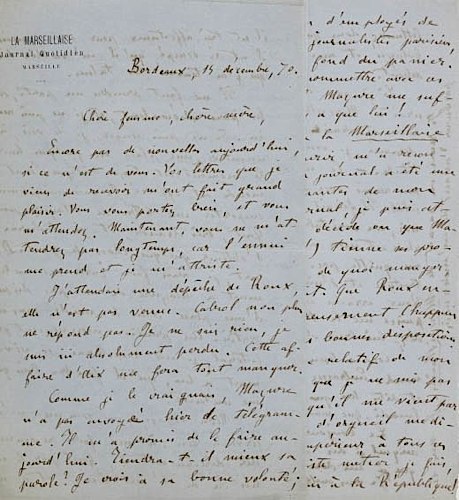 LA MARSEILLAISE
Journal Quotidien
MARSEILLE
Bordeaux, 14 décembre, 70.
Chère femme, chère mère,
Encore pas de nouvelles aujourd'hui,
si ce n'est de vous. Vos lettres que je
viens de recevoir m'ont fait grand
plaisir. Vous vous portez bien, et vous
m'attendez. Maintenant, vous ne m'at-
tendrez pas longtemps, car l'ennui
me prend et je m'attriste.
J'attendais une dépêche de Roux,
elle n'est pas venue. Cabrol non plus
ne répond pas. Je ne sais rien, je
suis ici absolument perdu. Cette af-
faire d'Aix me fera tout manquer.
Comme je le craignais, Mazure
n'a pas envoyé hier de télégram-
me. Il m'a promis de le faire au-
jourd'hui. Tiendra-t-il mieux sa
parole? Je crois à sa bonne volonté;
d'employés de
journalistes parisiens,
fond du panier.
promettre avec ces
Mazure me suf-
que lui!
la Marseillaise
journal a été une
de mon
journal, je puis at-
décide ou que Ma-
tienne sa pro-
de quoi manger,
Que Roux
bonnes dispositions
relatif de mon
que je ne suis pas
qu'il me vient par
d'orgueil me di-
supérieur à tous ces
métier
à la République!